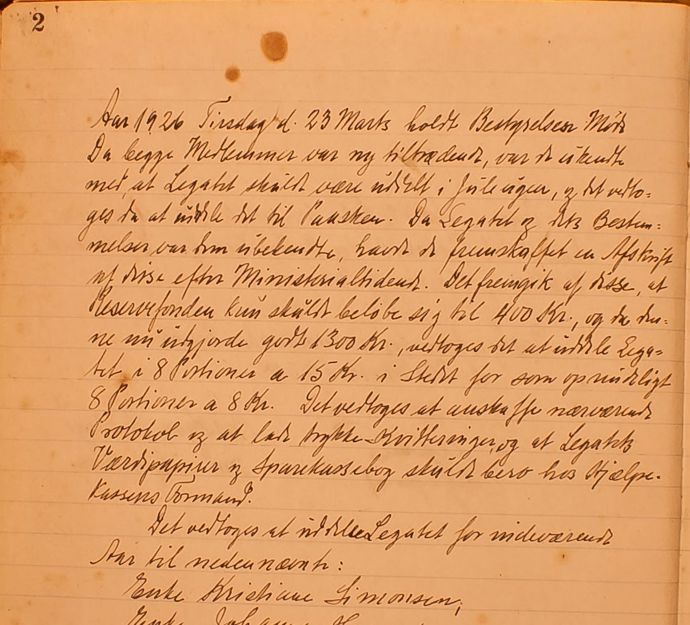 2
Aar 1926 Tirsdag d. 23 Marts holdt Bestyrelsen Møde
Da begge Medlemmer var ny tiltrædende, var de ukendte
med, at Legatet skulde være uddelt i Juleugen, og det vedto-
ges da at uddele det til Paasken. Da Legatet og dets Bestem-
melser var dem ubekendte, havde de fremskaffet en Afskrift
af disse efter Ministerialtidende. Det fremgik af disse, at
Reservefonden kun skulde beløbe sig til 400 Kr., og da den-
ne nu udgjorde godt 1300 Kr., vedtoges det at uddele Lega-
tet i 8 Portioner a 15 Kr. i Stedet for som oprindeligt
8 Portioner a 8 Kr. Det vedtoges at anskaffe nærværende
Protokol og at lade trykke Kvitteringer, og at Legatets
Værdipapirer og Sparekassebog skulde bero hos Hjælpe-
kassens Formand.
Det vedtoges at uddele Legatet for indeværende
Aar til nedennævnte:
Enke Kristiane Simonsen,
Enke